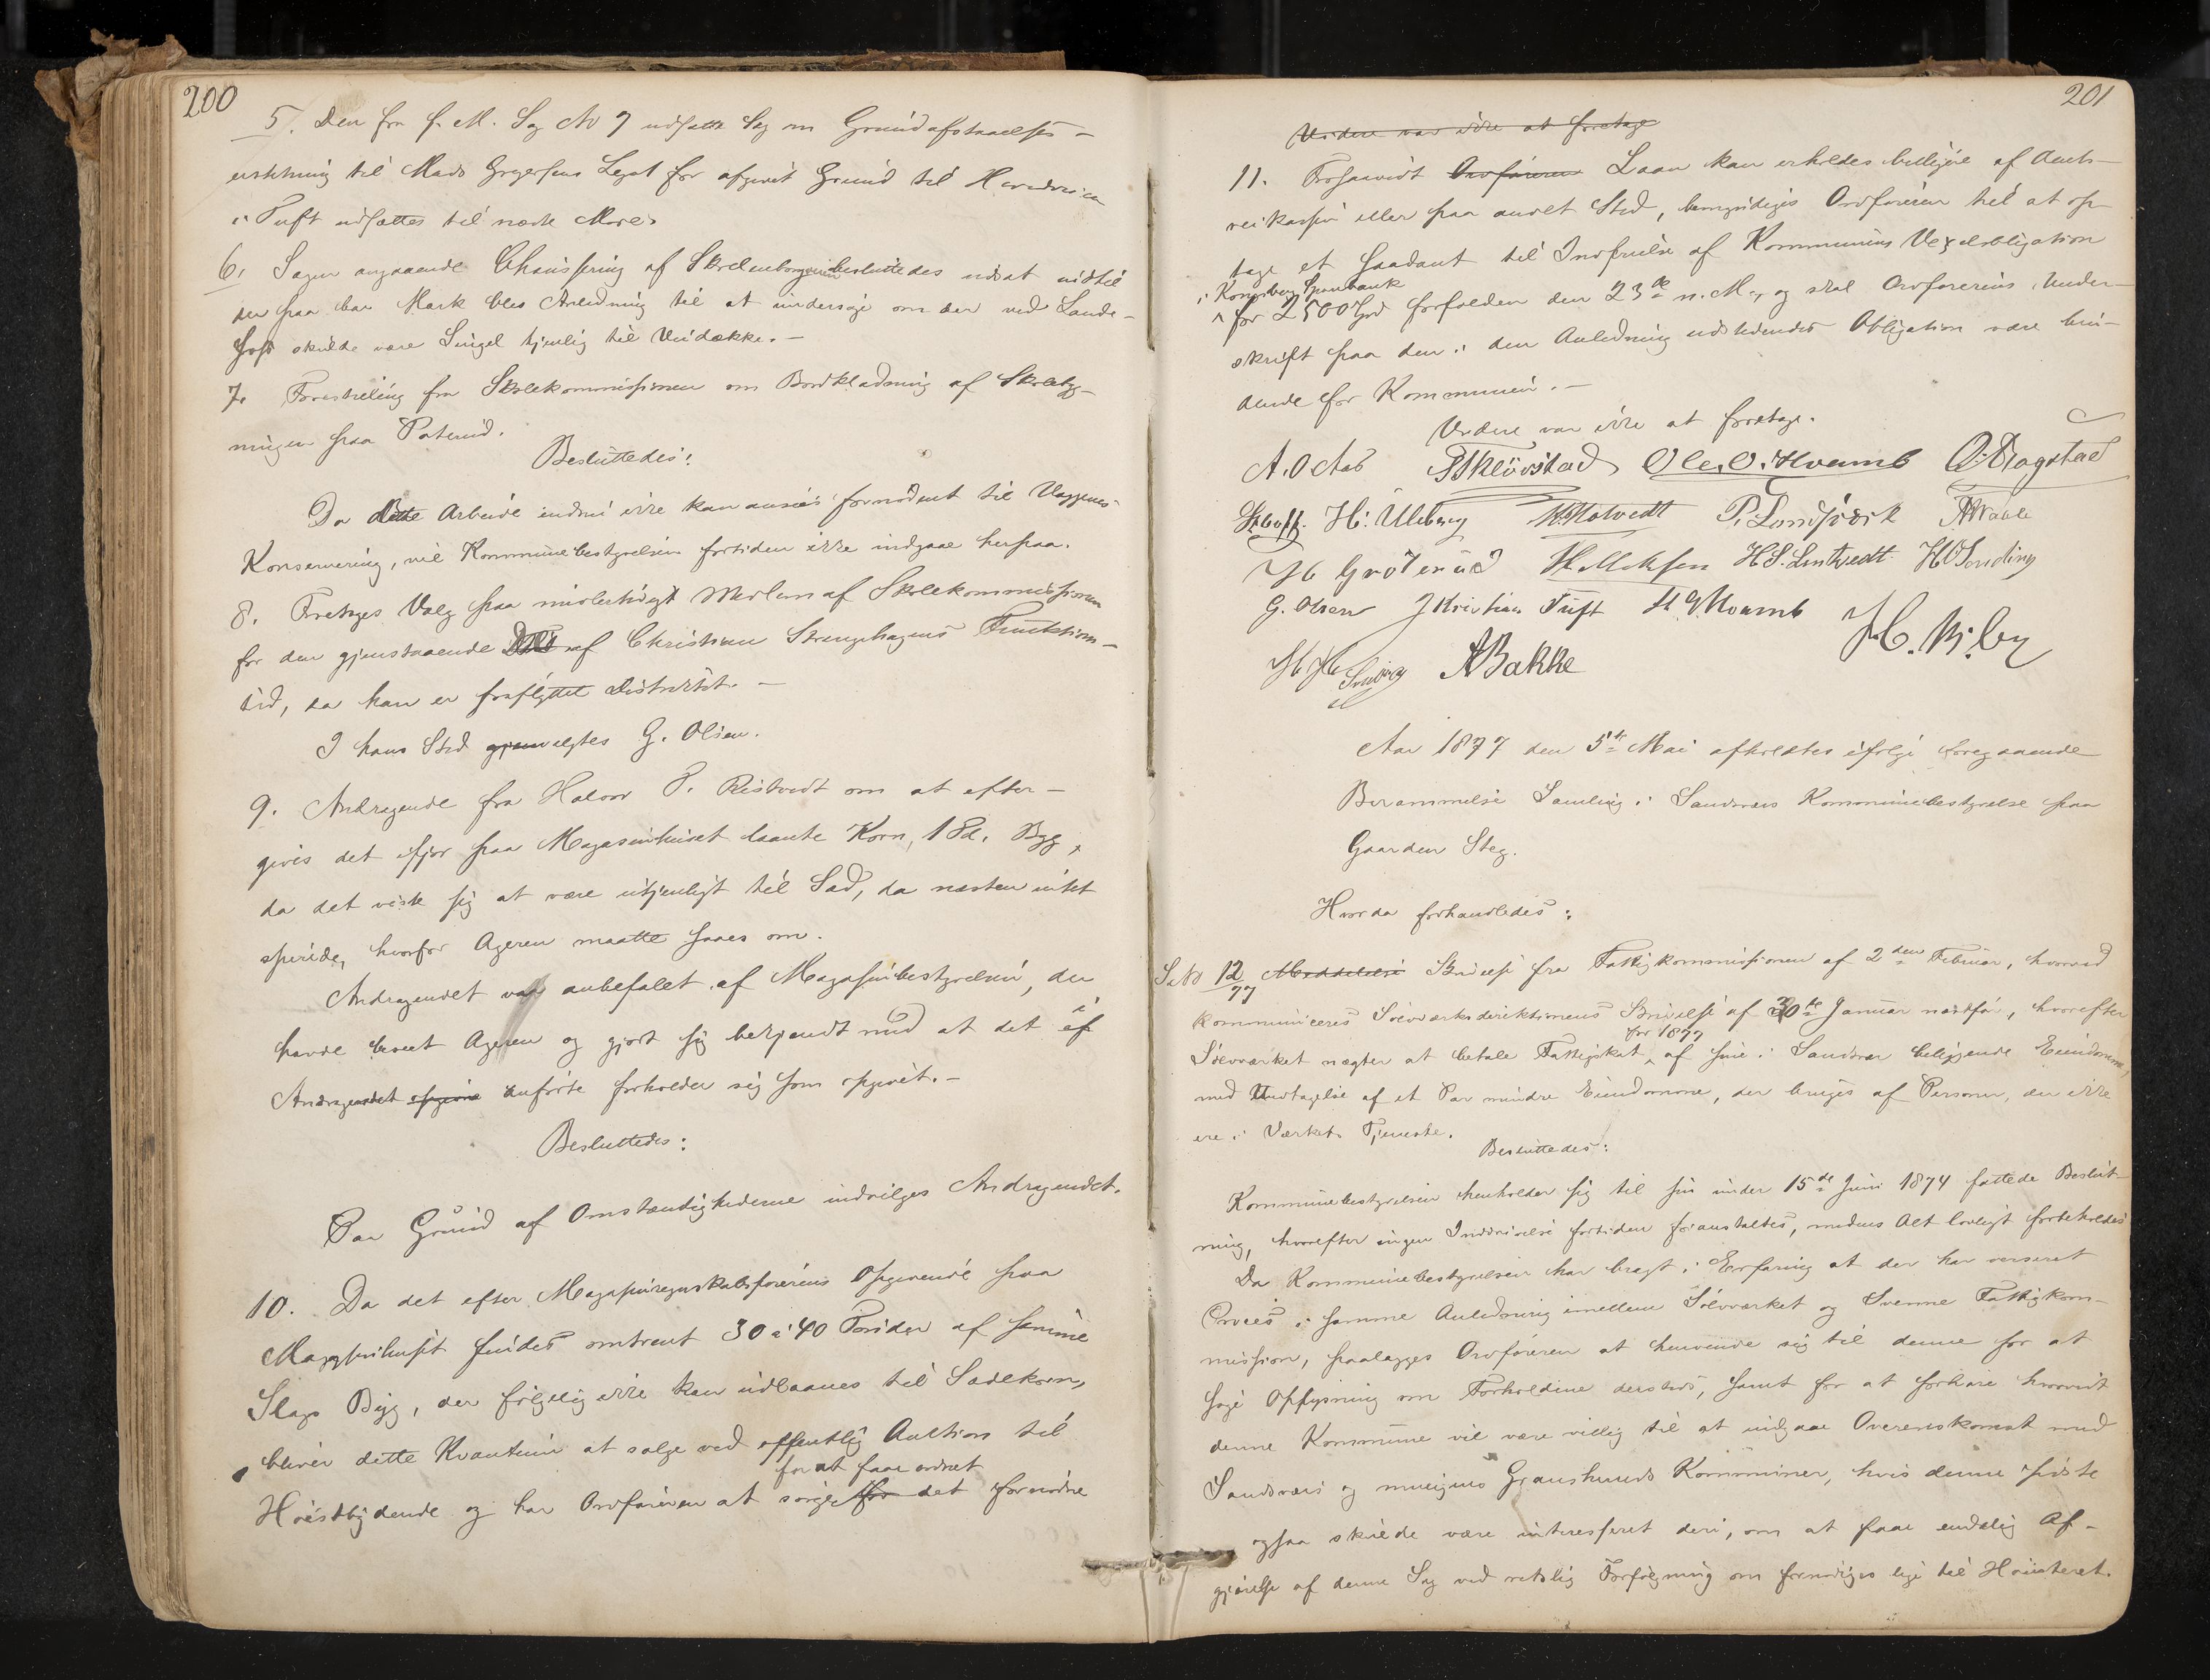 200
5. Den fra f. M. Sag No 7 udsatte Sag om Grundafstaaelses-
erstatning til Mads Gregersens Legat for afgivet Grund til
i Tuft udsættes til næste Møde.
6. Sagen angaaende Chaussering af besluttedes udsat indtil
der paa bar Mark blev Anledning til at undersøge om der ved Lande-
skulde være Singel tjenlig til Veidække. —
7. Forestilling fra Skolekommissionen om Bordklædning af Skolebyg-
ningen paa Paterud.
Besluttedes:
Da dette Arbeide endnu ikke kan ansees fornødent til Væggenes
Konservering, vil Kommunebestyrelsen fortiden ikke indgaae herpaa.
8. Foretoges Valg paa midlertidigt Medlem af Skolekommissionen
for den gjenstaaende Deel af Christian Strengehagens Funktions-
tid, da han er fraflyttet Distriktet. —
I hans Sted gjenvalgtes G. Olsen.
9. Andragende fra Halvor P. Ristvedt om at efter-
gives det ifjor paa Magasinhuset laante Korn, 1 Td. Byg,
da det viste sig at være utjenligt til Sæd, da næsten intet
spirede, hvorfor Ageren maatte saaes om.
Andragendet var anbefalet af Magasinbestyrelsen, der
havde beseet Ageren og gjort sig bekjendt med at det i
Andragendet opgivne anførte forholder sig som opgivet. —
Besluttedes:
Paa Grund af Omstændighederne indvilges Andragendet.
10. Da det efter Magasinregnskabsførerens Opgivende paa
Magasinhuset findes omtrent 30 à 40 Tønder af samme
Slags Byg, der følgelig ikke kan udlaanes til Sædekorn,
bliver dette Kvantum at sælge ved offentlig Auktion til
for at faae ordnet
Høistbydende og har Ordføreren at sørge for det fornødne
201
Videre var ikke at foretage
11. Forsaavidt Ordføreren Laan kan erholdes billigere af Amts-
veikassen eller paa andet Sted, bemyndiges Ordføreren til at op-
tage et saadant til Indfrielse af Kommunens Vexelobligation
i Kongsberg Sparebank
for 2500 Spd forfalden den 23de n. M., og skal Ordførerens Under-
skrift paa den i den Anledning udstedendes Obligation være bin-
dende for Kommunen. —
Videre var ikke at foretage.
A. O. Aas Ole O. Hvamb
H. Ulleberg P. Landsværk
H. S. Lintvedt
G. Olsen J Kristian Tuft
A Bakke
Aar 1877 den 5te Mai afholdtes ifølge foregaaende
Berammelse Samling i Sandsværs Kommunebestyrelse paa
Gaarden Steg.
Hvorda forhandledes:
S. No 12/77 Meddelelse Skrivelse fra Fattigkommissionen af 2den Februar, hvorved
kommuniceres Sølvværksdirektionens Skrivelse af 30te Januar næstfør, hvorefter
for 1877
Sølvværket nægter at betale Fattigskat af sine i Sandsvær beliggende Eiendomme,
med Undtagelse af et Par mindre Eiendomme, der bruges af Personer, der ikke
ere i Værkets Tjeneste.
Besluttedes:
Kommunebestyrelsen henholder sig til sin under 15de Juni 1874 fattede Beslut-
ning, hvorefter ingen Inddrivelse fortiden foranstaltes, medens Alt lovligt forbeholdes
Da Kommunebestyrelsen har bragt i Erfaring at der har verseret
Proces i samme Anledning imellem Sølvværket og Svenne Fattigkom-
mission, paalægges Ordføreren at henvende sig til denne for at
søge Oplysning om Forholdene dersteds, samt for at forhøre hvorvidt
denne Kommune vil være villig til at indgaae Overenskomst med
Sandsværs og muligens Granshereds Kommuner, hvis denne sidste
ogsaa skulde være interesseret deri, om at faae endelig Af-
gjørelse af denne Sag ved retslig Forfølgning om fornødiges lige til Høiesteret.